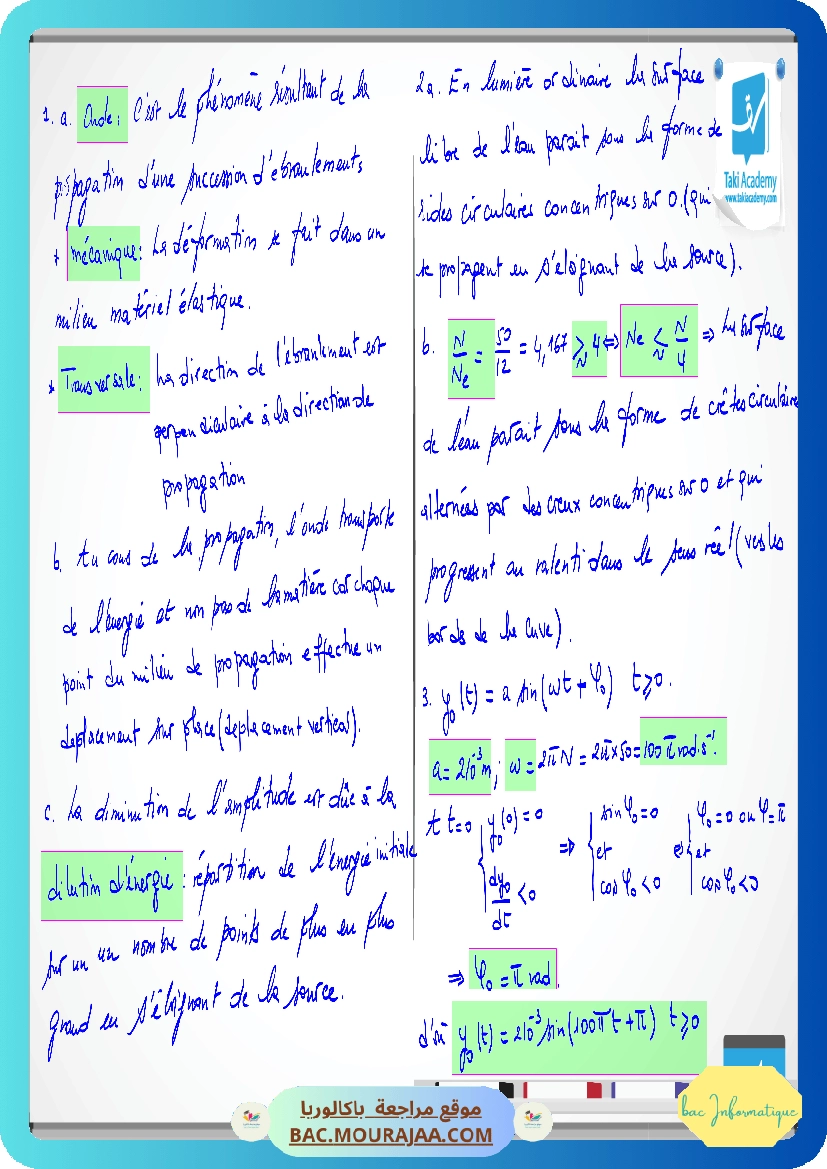 1. a. Onde : C'est le phénomène résultant de la
propagation d'une succession d'ébranlements
* mécanique : La déformation se fait dans un
milieu matériel élastique.
* Transversale : La direction de l'ébranlement est
perpendiculaire à la direction de
propagation
b. Au cours de la propagation, l'onde transporte
de l'énergie et non pas de la matière car chaque
point du milieu de propagation effectue un
deplacement sur place (deplacement vertical).
c. La diminution de l'amplitude est dûe à la
dilution d'énergie : répartition de l'énergie initiale
sur un un nombre de points de plus en plus
grand en s'éloignant de la source.
2a. En lumière ordinaire la surface
libre de l'eau parait sous la forme de
rides circulaires concentriques sur O. (qui
se propagent en s'éloignant de la source).
b. N/Ne = 50/12 = 4,167 ⩾ 4 ⇔ Ne ⩽ N/4 ⇒ La surface
de l'eau parait sous la forme de crêtes circulaires
alternées par des creux concentriques sur O et qui
progressent au ralenti dans le sens réel (vers les
bords de la cuve).
3. y₀(t) = a sin(ωt + φ₀) t ⩾ 0.
a = 2 10⁻³ m ; ω = 2πN = 2π×50 = 100π rad.s⁻¹.
A t=0 { y₀(0) = 0 ⇒ { sin φ₀ = 0 ⇔ { φ₀ = 0 ou φ = π
et et
dy₀/dt < 0 cos φ₀ < 0 cos φ₀ < 0
⇒ φ₀ = π rad.
d'où y₀(t) = 2 10⁻³ sin(100πt + π) t ⩾ 0
Taki Academy
www.takiacademy.com
موقع مراجعة باكالوريا
BAC.MOURAJAA.COM
bac Informatique